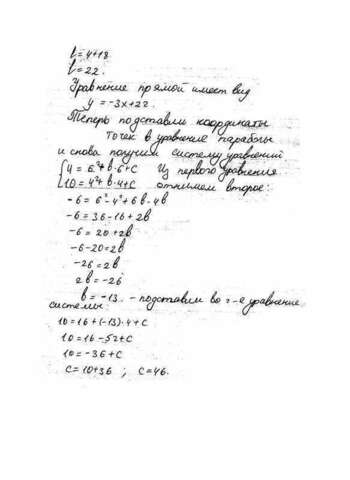 l = 4+18
l = 22.
Уравнение прямой имеет вид
y = -3x+22.
Теперь подставим координаты
точек в уравнение параболы
и снова получим систему уравнений
{4 = 6²+b·6+c Из первого уравнения
{10 = 4²+b·4+c отнимем второе:
-6 = 6²-4²+6b-4b
-6 = 36-16+2b
-6 = 20+2b
-6-20=2b
-26=2b
2b = -26
b = -13 - подставим во 2-е уравнение
системы:
10=16+(-13)·4+c
10=16-52+c
10=-36+c
c=10+36 ; c=46.